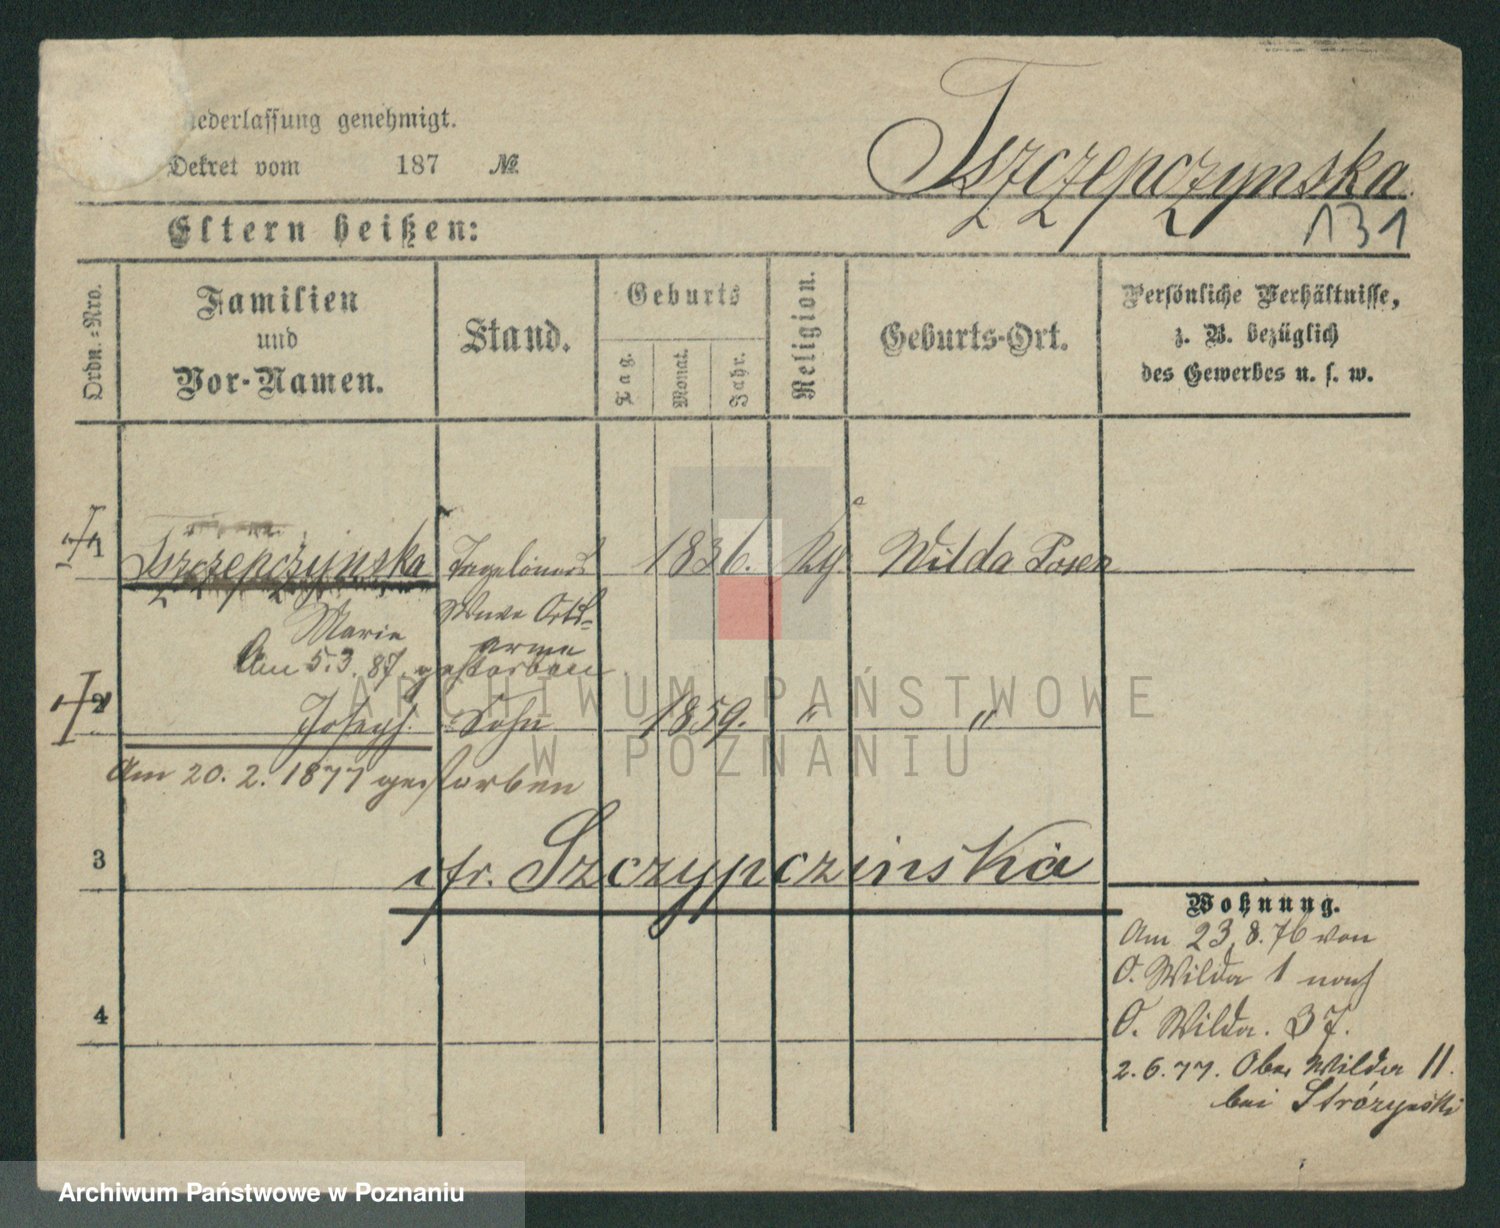 iederlassung genehmigt.
Dekret vom 187 №
Tszczepczynska
131
Eltern heißen:
Ordn.-Nro.
Familien
und
Vor-Namen.
Stand.
Geburts
Tag.
Monat.
Jahr.
Religion.
Geburts-Ort.
Persönliche Verhältnisse,
z. B. bezüglich
des Gewerbes u. s. w.
1 Tszczepczynska 1836. Wilda Posen
Marie Wwe Orts-
arme
Am 5.3.87. gestorben
2 Joseph. Sohn 1859. " "
Am 20. 2. 1877 gestorben
3
cfr. Szczypczinska
Wohnung.
Am 23.8.76 von
O. Wilda 1 nach
O. Wilda. 37.
4
2.6.77. Ober Wilda 11.
bei Strózynski
ARCHIWUM PAŃSTWOWE
W POZNANIU
Archiwum Państwowe w Poznaniu